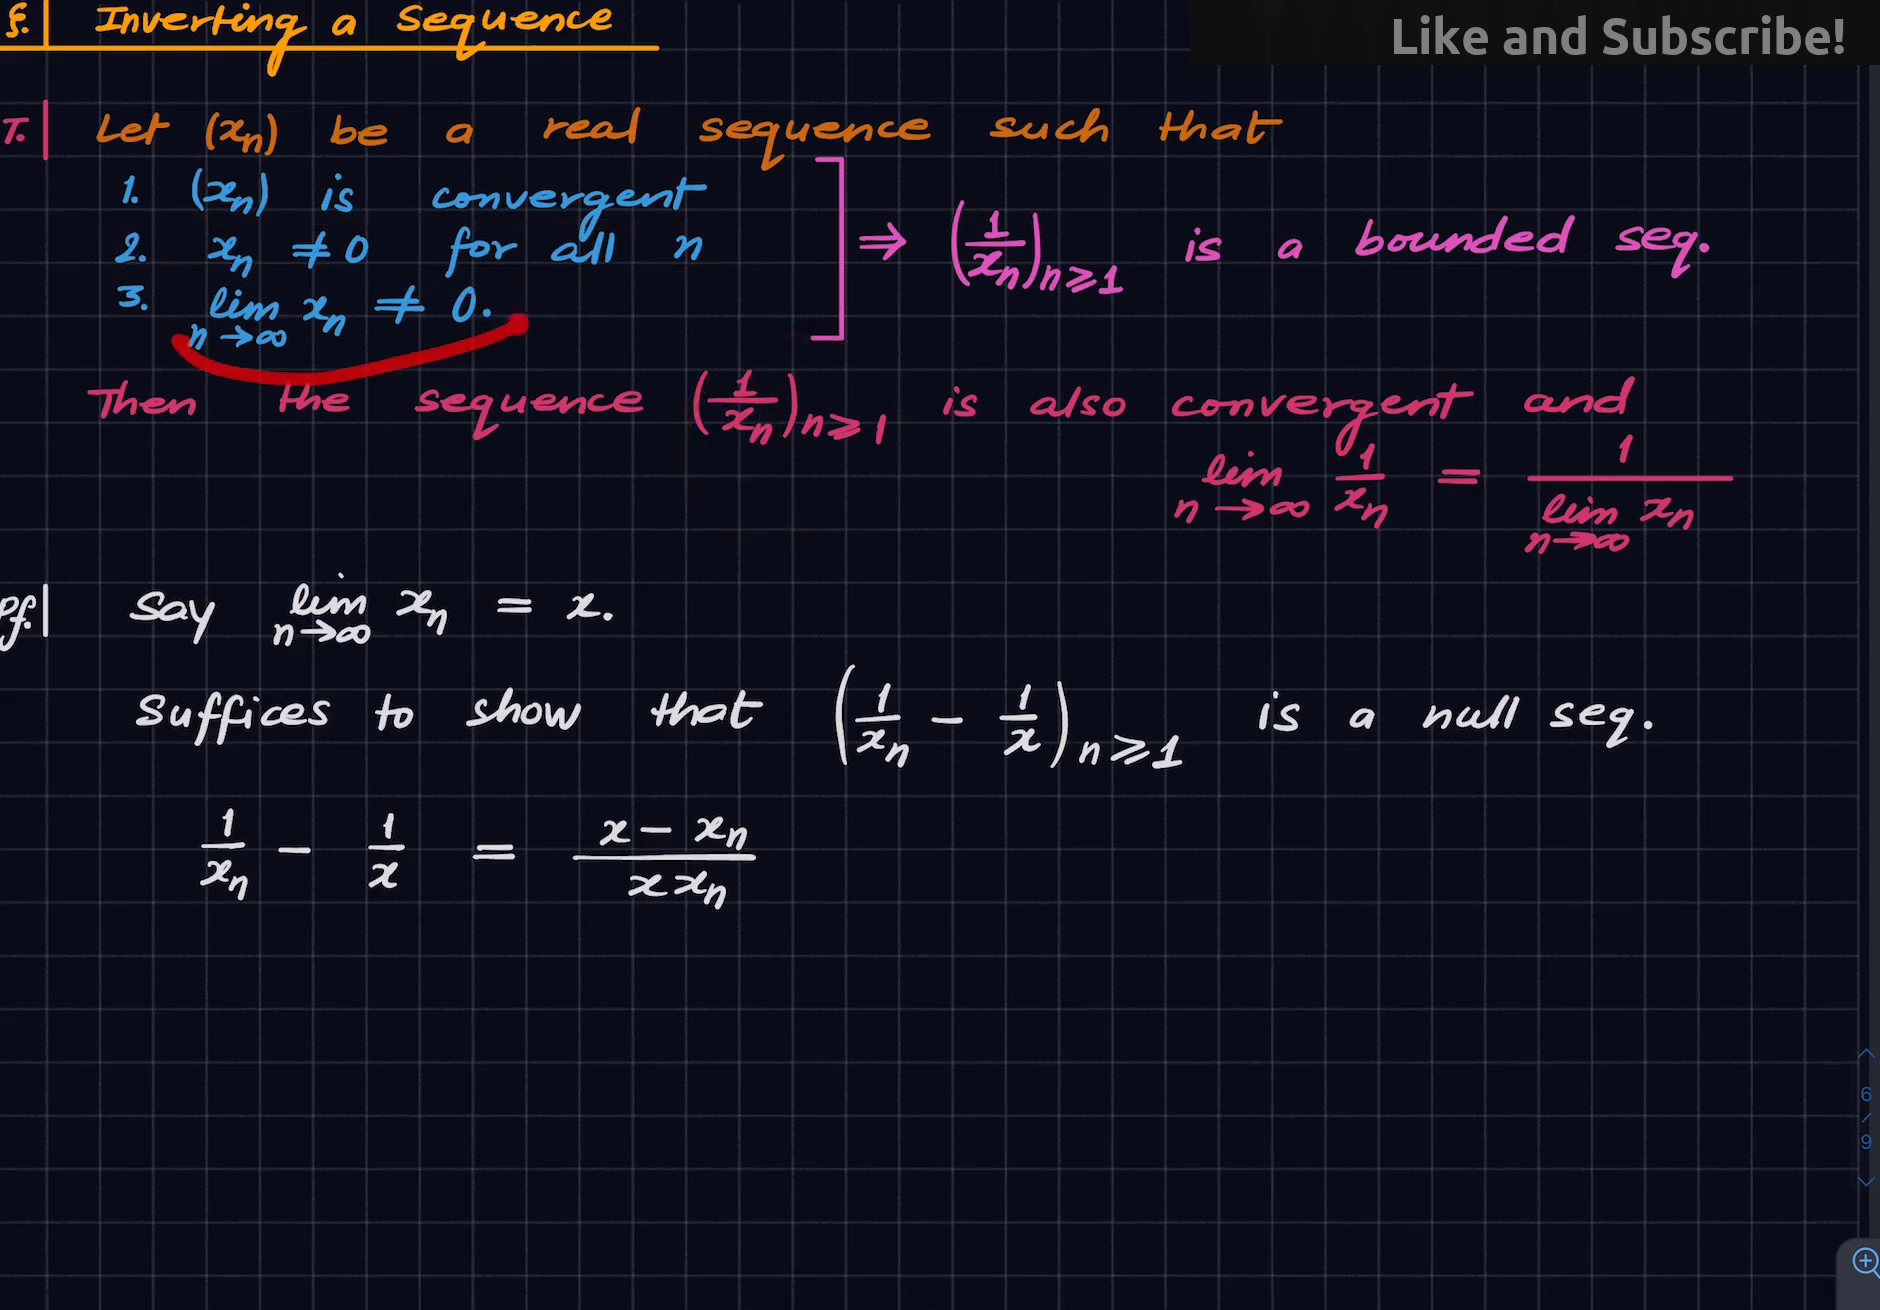 §. Inverting a Sequence
Like and Subscribe!
T. Let (xₙ) be a real sequence such that
1. (xₙ) is convergent
2. xₙ ≠ 0 for all n
3. lim n→∞ xₙ ≠ 0.
⇒ (1/xₙ) n⩾1 is a bounded seq.
Then the sequence (1/xₙ) n⩾1 is also convergent and
lim n→∞ 1/xₙ = 1/(lim n→∞ xₙ)
Pf. Say lim n→∞ xₙ = x.
Suffices to show that (1/xₙ − 1/x) n⩾1 is a null seq.
1/xₙ − 1/x = (x − xₙ)/(x xₙ)
6
/
9